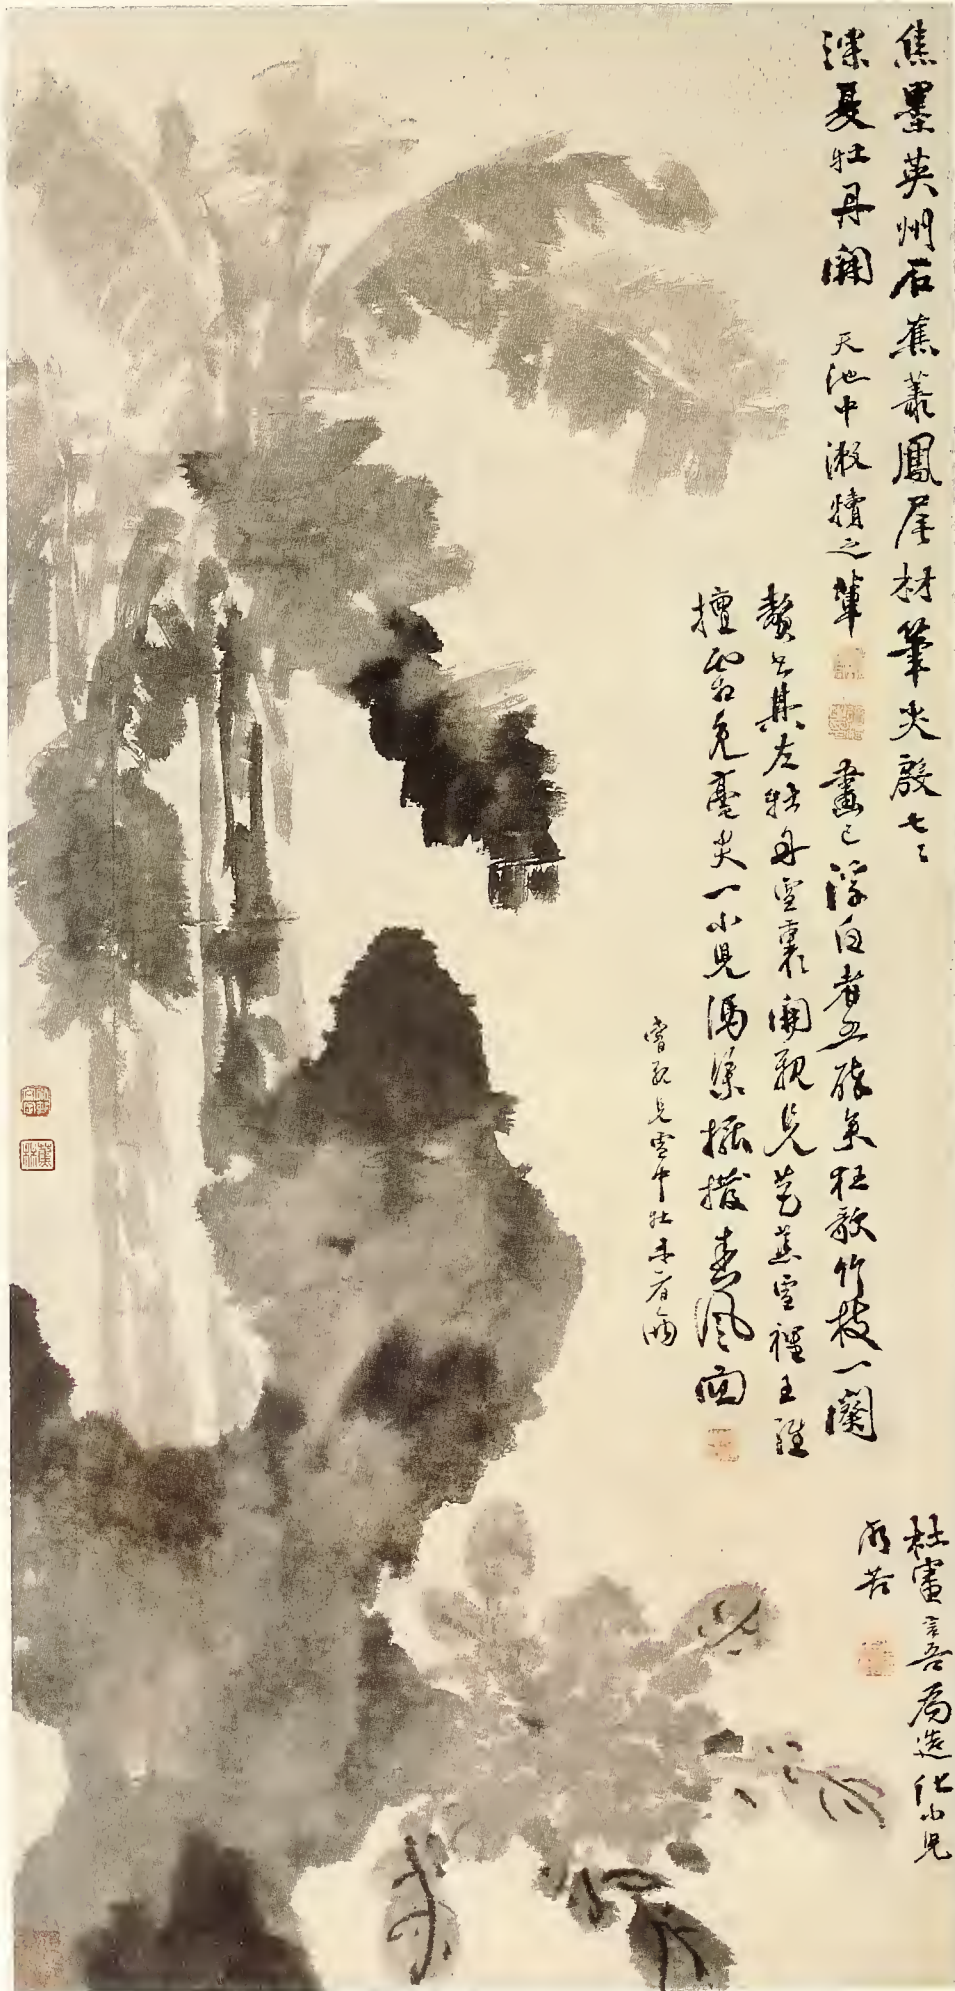 焦墨英州石蕉叢鳳尾材筆尖殷七〻
深夏牡丹開 天池中漱犢之輩
畫已浮白者五醉矣狂歌竹枝一闌
贅書其左牡丹雪裏開親見芭蕉雪裡王維
擅霜兔毫尖一小兒馮渠擺撥春風面
嘗親見雪中牡丹者兩
杜審言吾為造化小兒
所苦
蕉林